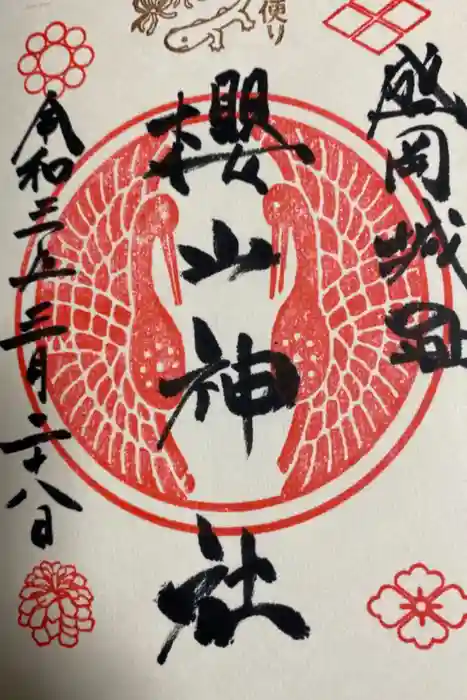 便り
盛岡城㘴
櫻山神社
令和三年三月二十八日